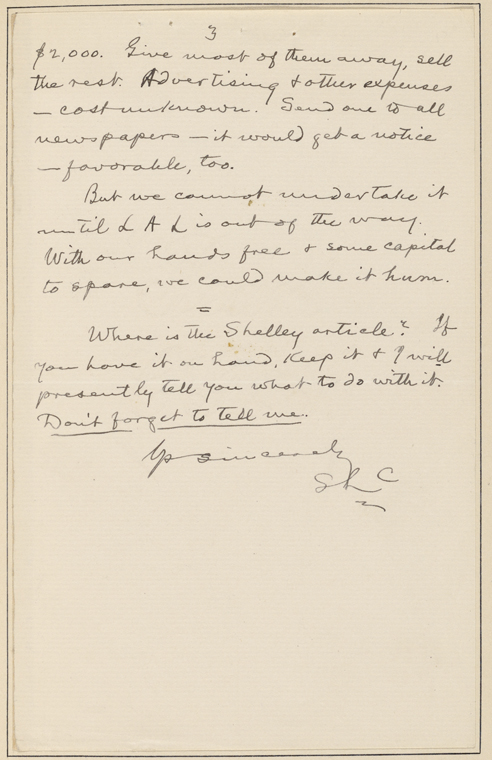 3
$2,000. Give most of them away, sell
the rest. Advertising & other expenses
— cost unknown. Send one to all
newspapers — it would get a notice
— favorable, too.
But we cannot undertake it
until L A L is out of the way.
With our hands free & some capital
to spare, we could make it hum.
=
Where is the Shelley article? If
you have it on hand, keep it & I will
presently tell you what to do with it.
Don't forget to tell me.
Yrs sincerely
SLC